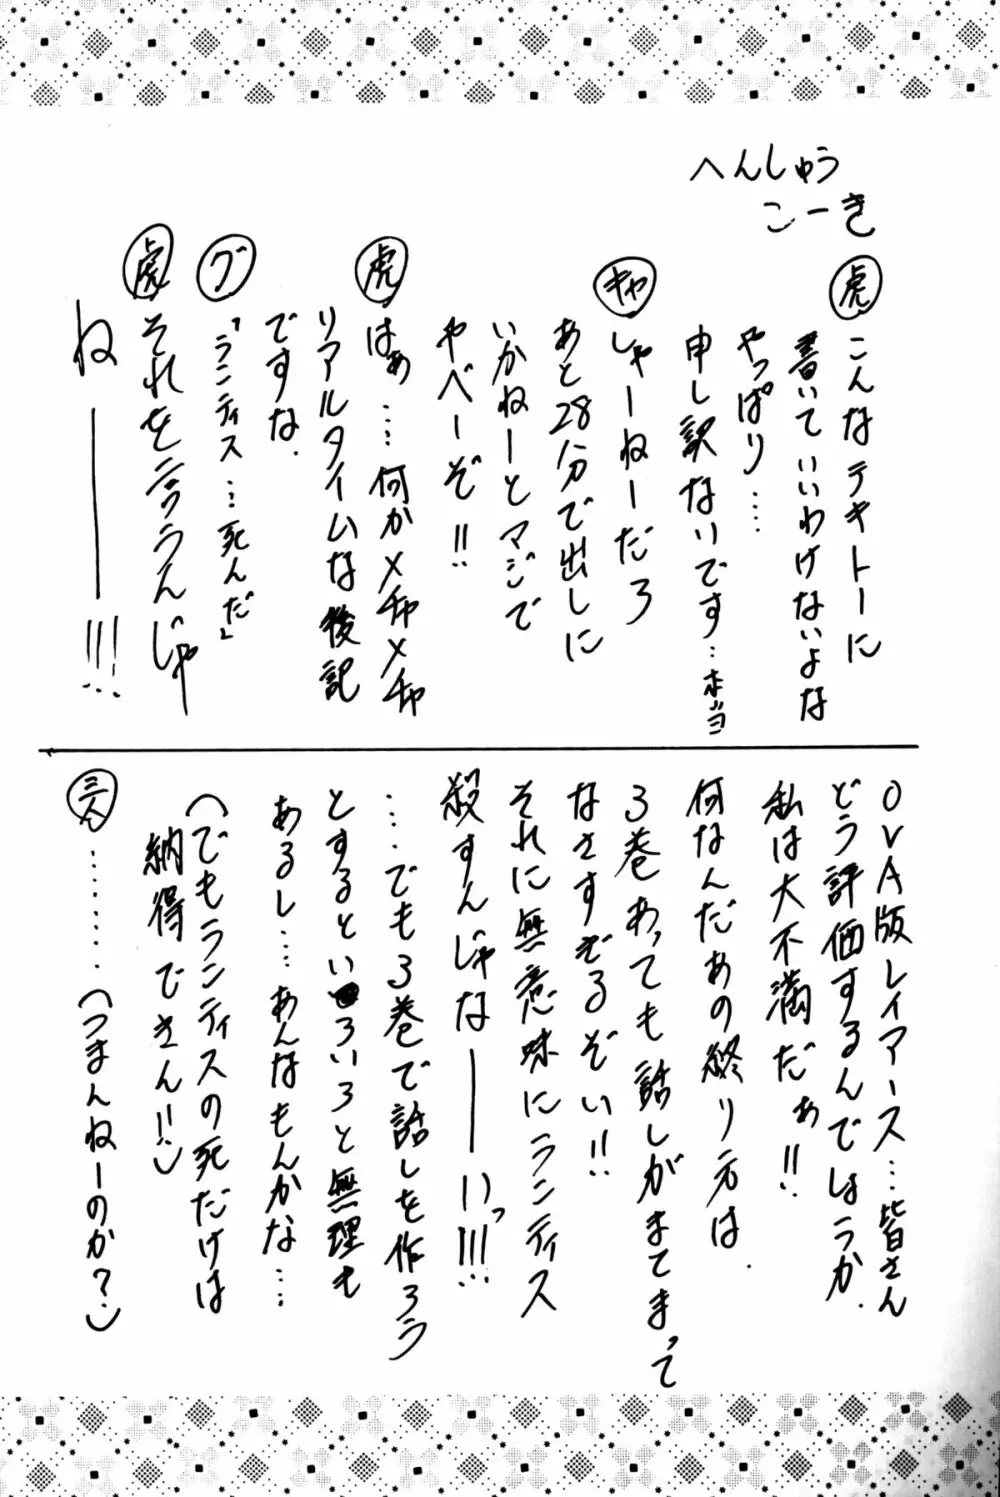 へんしゅう
こーき
虎 こんなテキトーに
書いていいわけないよな
やっぱり….
申し訳ないです…本当
キャ しゃーねーだろ
あと28分で出しに
いかねーとマジで
やべーぞ!!
虎 はぁ….何かメチャメチャ
リアルタイムな後記
ですな.
グ 「ランティス…死んだ」
虎 それを言うんじゃ
ねーーーー!!!
OVA版レイアース…皆さん
どう評価するんでしょうか.
私は大不満だぁ!!
何なんだあの終り方は.
3巻あっても話しがまてまって
なさすぎるぞい!!
それに無意味にランティス
殺すんじゃなーーいっ!!!
…でも3巻で話しを作ろう
とするといろいろと無理も
あるし….あんなもんかな….
(でもランティスの死だけは
納得できん!!)
三人 ………(つまんねーのか?)